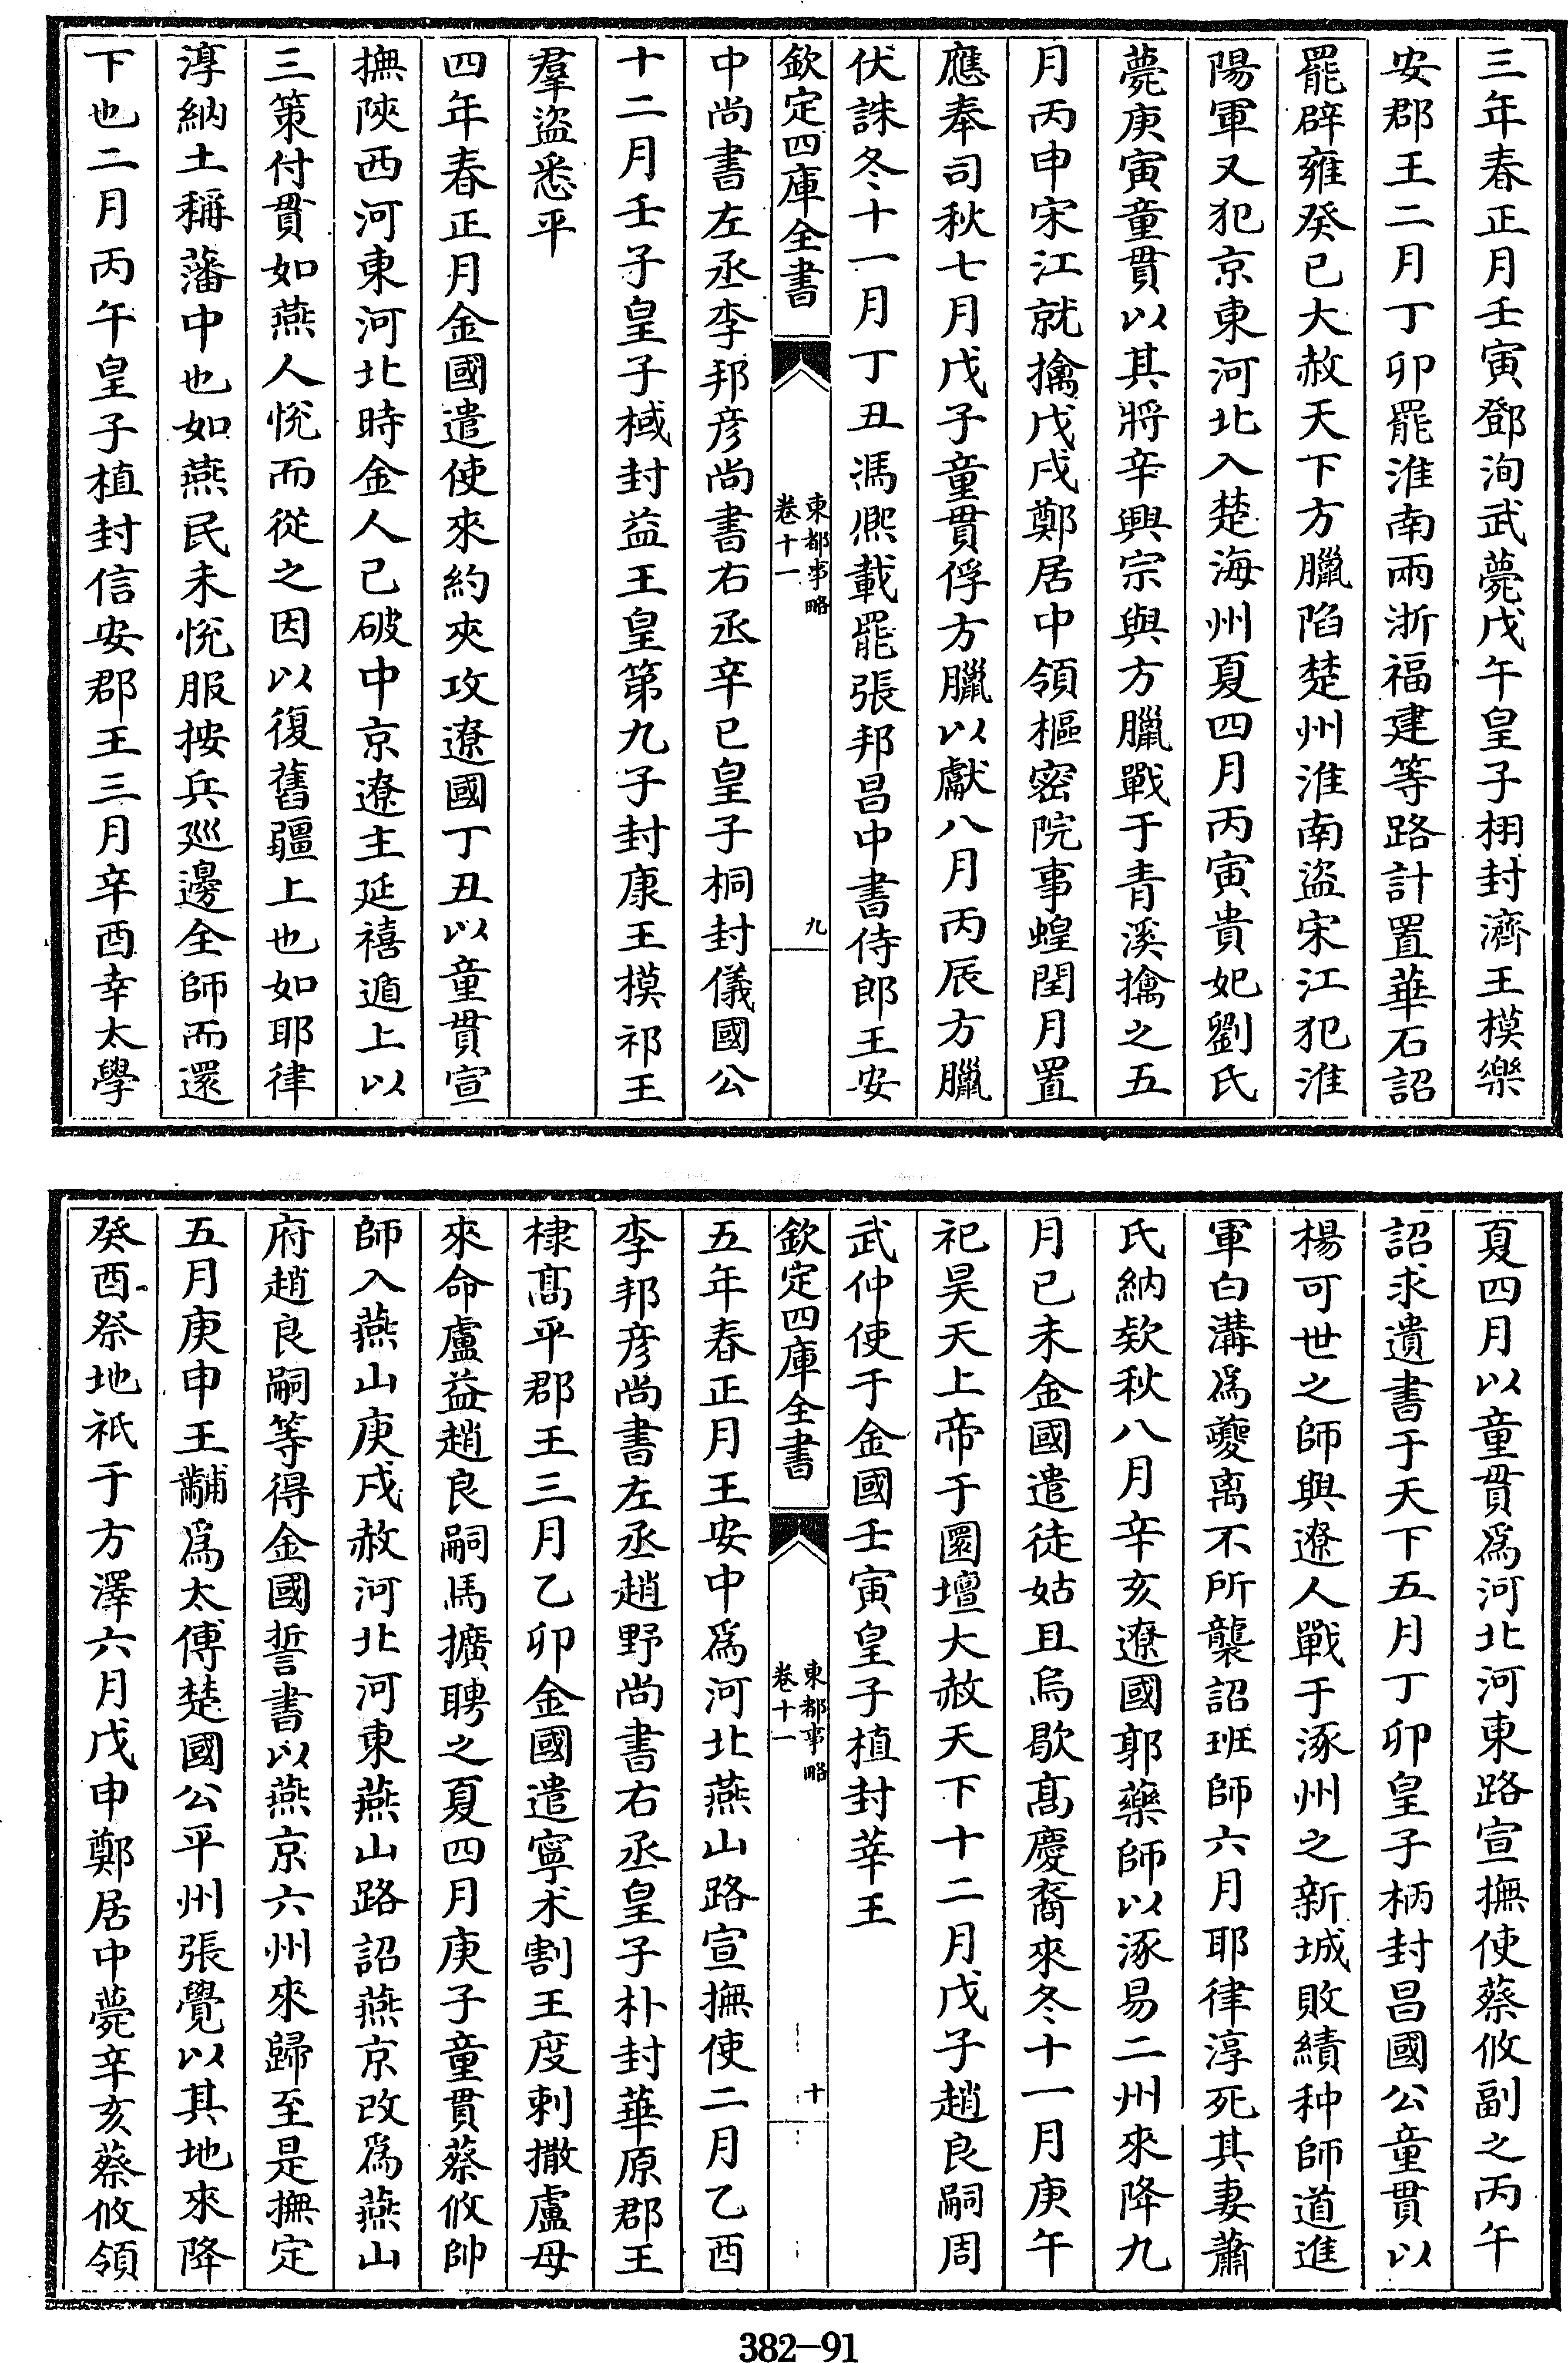 三年春正月壬寅鄧洵武薨戊午皇子栩封濟王模樂
安郡王二月丁卯罷淮南兩浙福建等路計置華石詔
罷辟雍癸已大赦天下方臘陷楚州淮南盜宋江犯淮
陽軍又犯京東河北入楚海州夏四月丙寅貴妃劉氏
薨庚寅童貫以其將辛興宗與方臘戰于青溪擒之五
月丙申宋江就擒戊戌鄭居中領樞密院事蝗閏月置
應奉司秋七月戊子童貫俘方臘以獻八月丙辰方臘
伏誅冬十一月丁丑馮熈載罷張邦昌中書侍郎王安
欽定四庫全書
東都事略
卷十一
九
中尚書左丞李邦彦尚書右丞辛已皇子桐封儀國公
十二月壬子皇子棫封益王皇第九子封康王模祁王
羣盜悉平
四年春正月金國遣使來約夾攻遼國丁丑以童貫宣
撫陜西河東河北時金人已破中京遼主延禧遁上以
三策付貫如燕人悅而從之因以復舊疆上也如耶律
淳納土稱藩中也如燕民未悅服按兵廵邊全師而還
下也二月丙午皇子植封信安郡王三月辛酉幸太學
夏四月以童貫爲河北河東路宣撫使蔡攸副之丙午
詔求遺書于天下五月丁卯皇子柄封昌國公童貫以
楊可世之師與遼人戰于涿州之新城敗績种師道進
軍白溝爲夔离不所襲詔班師六月耶律淳死其妻蕭
氏納欵秋八月辛亥遼國郭藥師以涿易二州來降九
月已未金國遣徒姑且烏歇髙慶裔來冬十一月庚午
祀昊天上帝于圜壇大赦天下十二月戊子趙良嗣周
武仲使于金國壬寅皇子植封莘王
欽定四庫全書
東都事略
卷十一
十
五年春正月王安中爲河北燕山路宣撫使二月乙酉
李邦彦尚書左丞趙野尚書右丞皇子朴封華原郡王
棣髙平郡王三月乙卯金國遣寧术割王度剌撒盧母
來命盧益趙良嗣馬擴聘之夏四月庚子童貫蔡攸帥
師入燕山庚戌赦河北河東燕山路詔燕京改爲燕山
府趙良嗣等得金國誓書以燕京六州來歸至是撫定
五月庚申王黼爲太傅楚國公平州張覺以其地來降
癸酉祭地祇于方澤六月戊申鄭居中薨辛亥蔡攸領
382-91